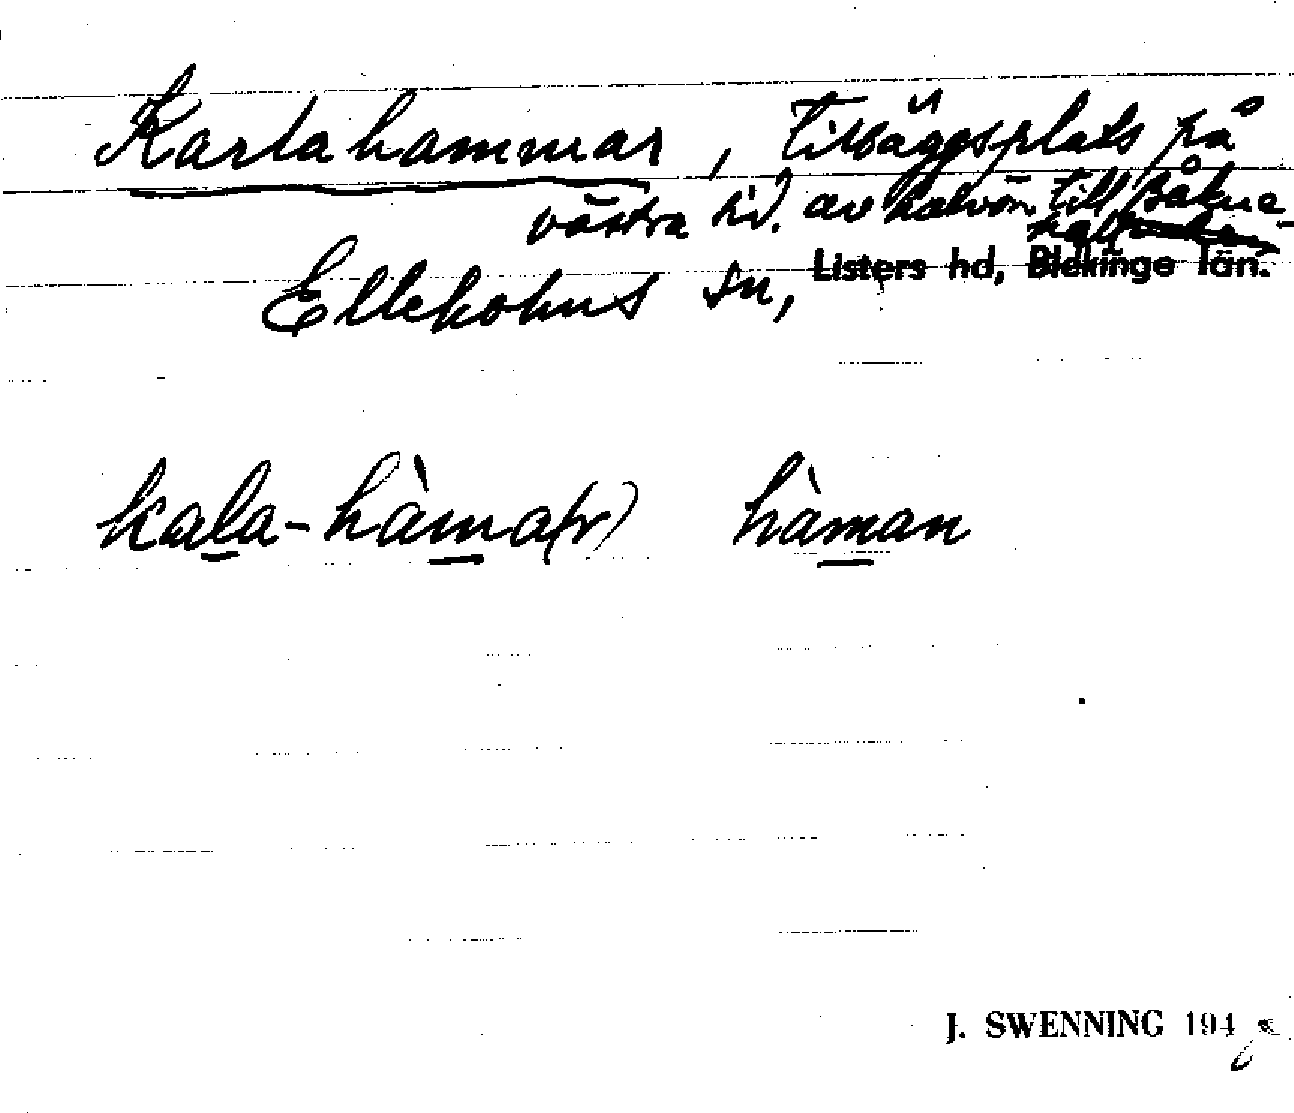 Karlahammar, tilläggsplats på
västra sid. av halvön till Våkna-
Listers hd, Blekinge län.
Elleholms sn,
kala-hàma(r) hàman
J. SWENNING 194